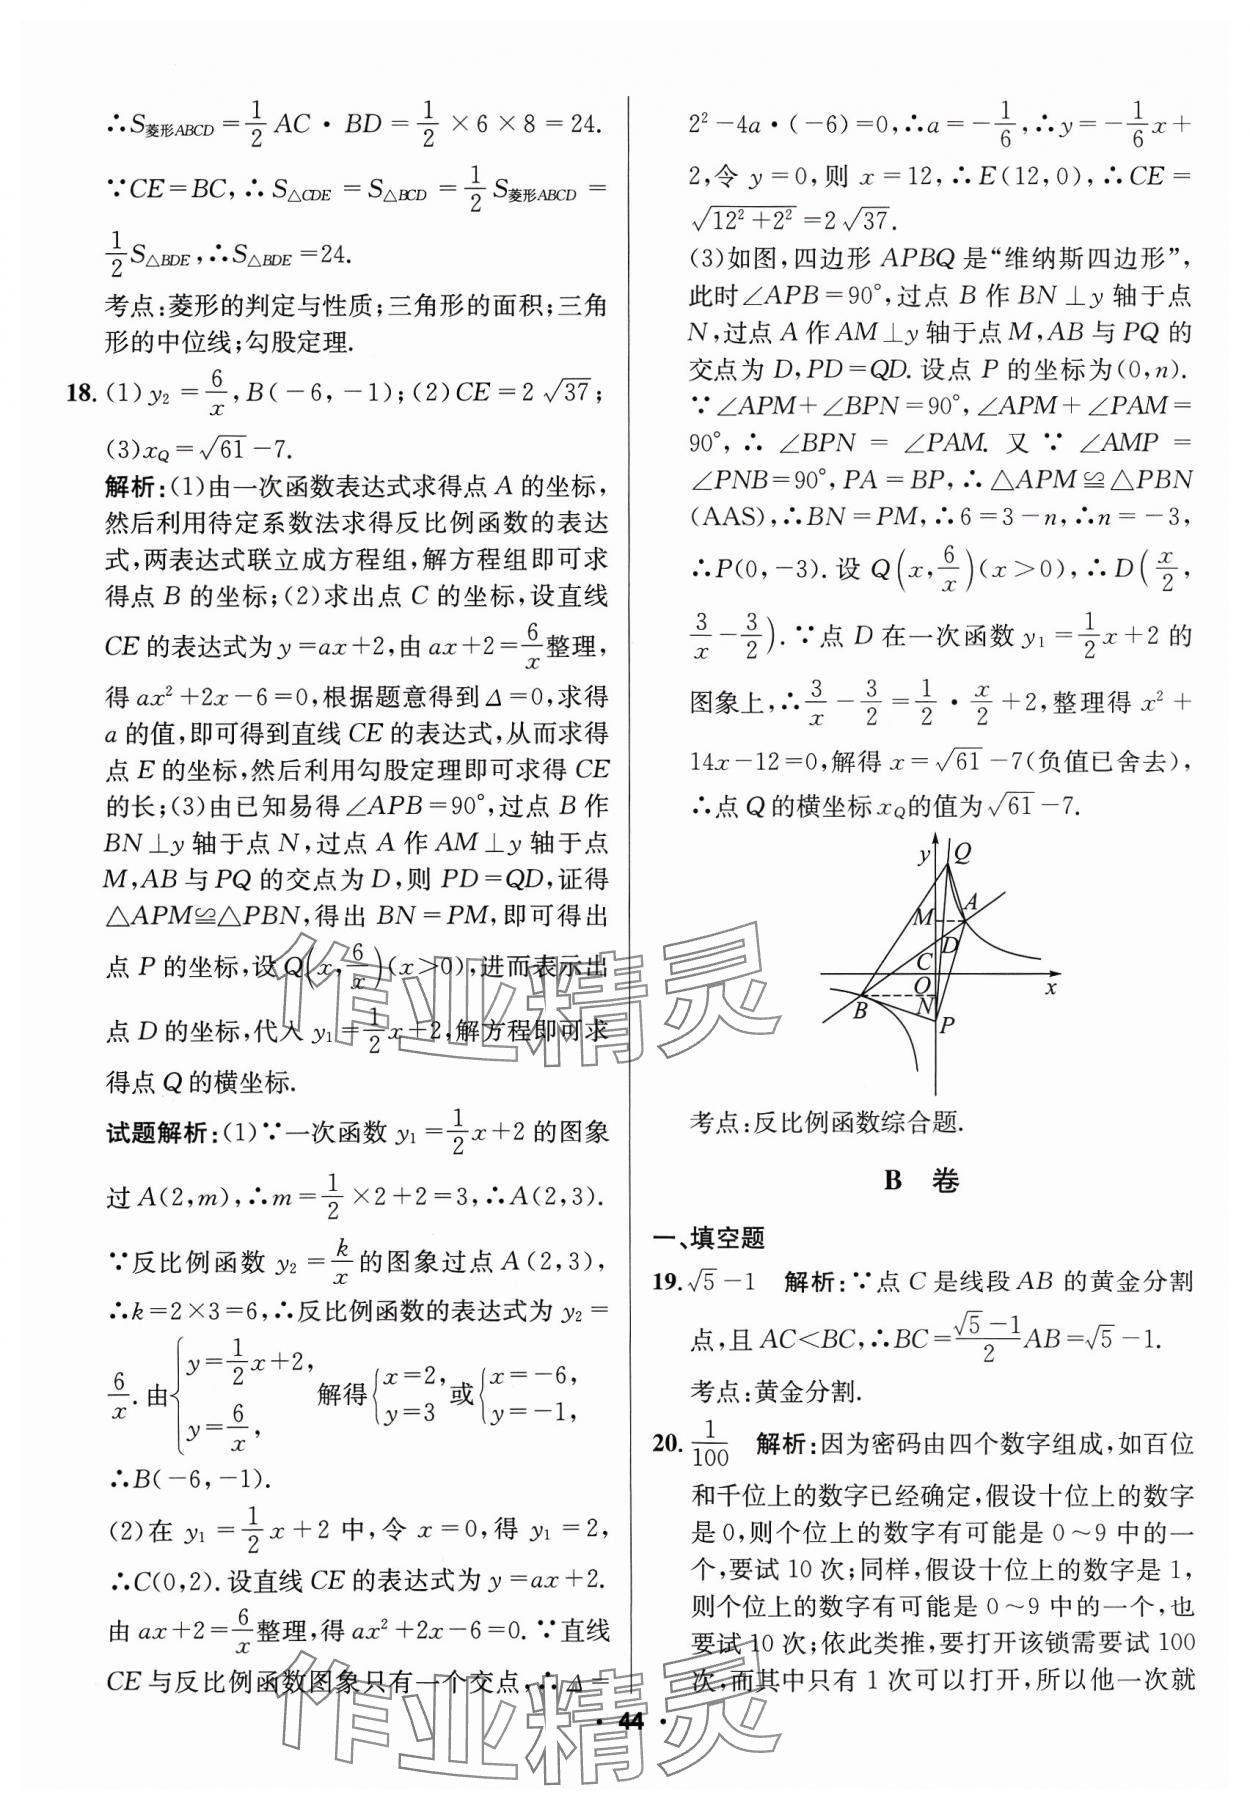 ∴S菱形ABCD=1/2 AC·BD=1/2×6×8=24.
∵CE=BC,∴S△CDE=S△BCD=1/2 S菱形ABCD=
1/2 S△BDE,∴S△BDE=24.
考点:菱形的判定与性质;三角形的面积;三角
形的中位线;勾股定理.
18.(1)y₂=6/x,B(-6,-1);(2)CE=2√37;
(3)x_Q=√61-7.
解析:(1)由一次函数表达式求得点A的坐标,
然后利用待定系数法求得反比例函数的表达
式,两表达式联立成方程组,解方程组即可求
得点B的坐标;(2)求出点C的坐标,设直线
CE的表达式为y=ax+2,由ax+2=6/x整理,
得ax²+2x-6=0,根据题意得到Δ=0,求得
a的值,即可得到直线CE的表达式,从而求得
点E的坐标,然后利用勾股定理即可求得CE
的长;(3)由已知易得∠APB=90°,过点B作
BN⊥y轴于点N,过点A作AM⊥y轴于点
M,AB与PQ的交点为D,则PD=QD,证得
△APM≌△PBN,得出BN=PM,即可得出
点P的坐标,设Q(x,6/x)(x>0),进而表示出
点D的坐标,代入y₁=1/2x+2,解方程即可求
得点Q的横坐标.
试题解析:(1)∵一次函数y₁=1/2x+2的图象
过A(2,m),∴m=1/2×2+2=3,∴A(2,3).
∵反比例函数y₂=k/x的图象过点A(2,3),
∴k=2×3=6,∴反比例函数的表达式为y₂=
6/x.由{y=1/2x+2, y=6/x, 解得{x=2, y=3 或{x=-6, y=-1,
∴B(-6,-1).
(2)在y₁=1/2x+2中,令x=0,得y₁=2,
∴C(0,2).设直线CE的表达式为y=ax+2.
由ax+2=6/x整理,得ax²+2x-6=0.∵直线
CE与反比例函数图象只有一个交点,∴Δ=
2²-4a·(-6)=0,∴a=-1/6,∴y=-1/6x+
2,令y=0,则x=12,∴E(12,0),∴CE=
√(12²+2²)=2√37.
(3)如图,四边形APBQ是“维纳斯四边形”,
此时∠APB=90°,过点B作BN⊥y轴于点
N,过点A作AM⊥y轴于点M,AB与PQ的
交点为D,PD=QD.设点P的坐标为(0,n).
∵∠APM+∠BPN=90°,∠APM+∠PAM=
90°,∴∠BPN=∠PAM.又∵∠AMP=
∠PNB=90°,PA=BP,∴△APM≌△PBN
(AAS),∴BN=PM,∴6=3-n,∴n=-3,
∴P(0,-3).设Q(x,6/x)(x>0),∴D(x/2,
3/x-3/2).∵点D在一次函数y₁=1/2x+2的
图象上,∴3/x-3/2=1/2·x/2+2,整理得x²+
14x-12=0,解得x=√61-7(负值已舍去),
∴点Q的横坐标x_Q的值为√61-7.
y
Q
M
A
D
C
O
x
B
N
P
考点:反比例函数综合题.
B 卷
一、填空题
19.√5-1 解析:∵点C是线段AB的黄金分割
点,且AC<BC,∴BC=(√5-1)/2 AB=√5-1.
考点:黄金分割.
20.1/100 解析:因为密码由四个数字组成,如百位
和千位上的数字已经确定,假设十位上的数字
是0,则个位上的数字有可能是0~9中的一
个,要试10次;同样,假设十位上的数字是1,
则个位上的数字有可能是0~9中的一个,也
要试10次;依此类推,要打开该锁需要试100
次,而其中只有1次可以打开,所以他一次就
·44·
作业精灵
作业精灵